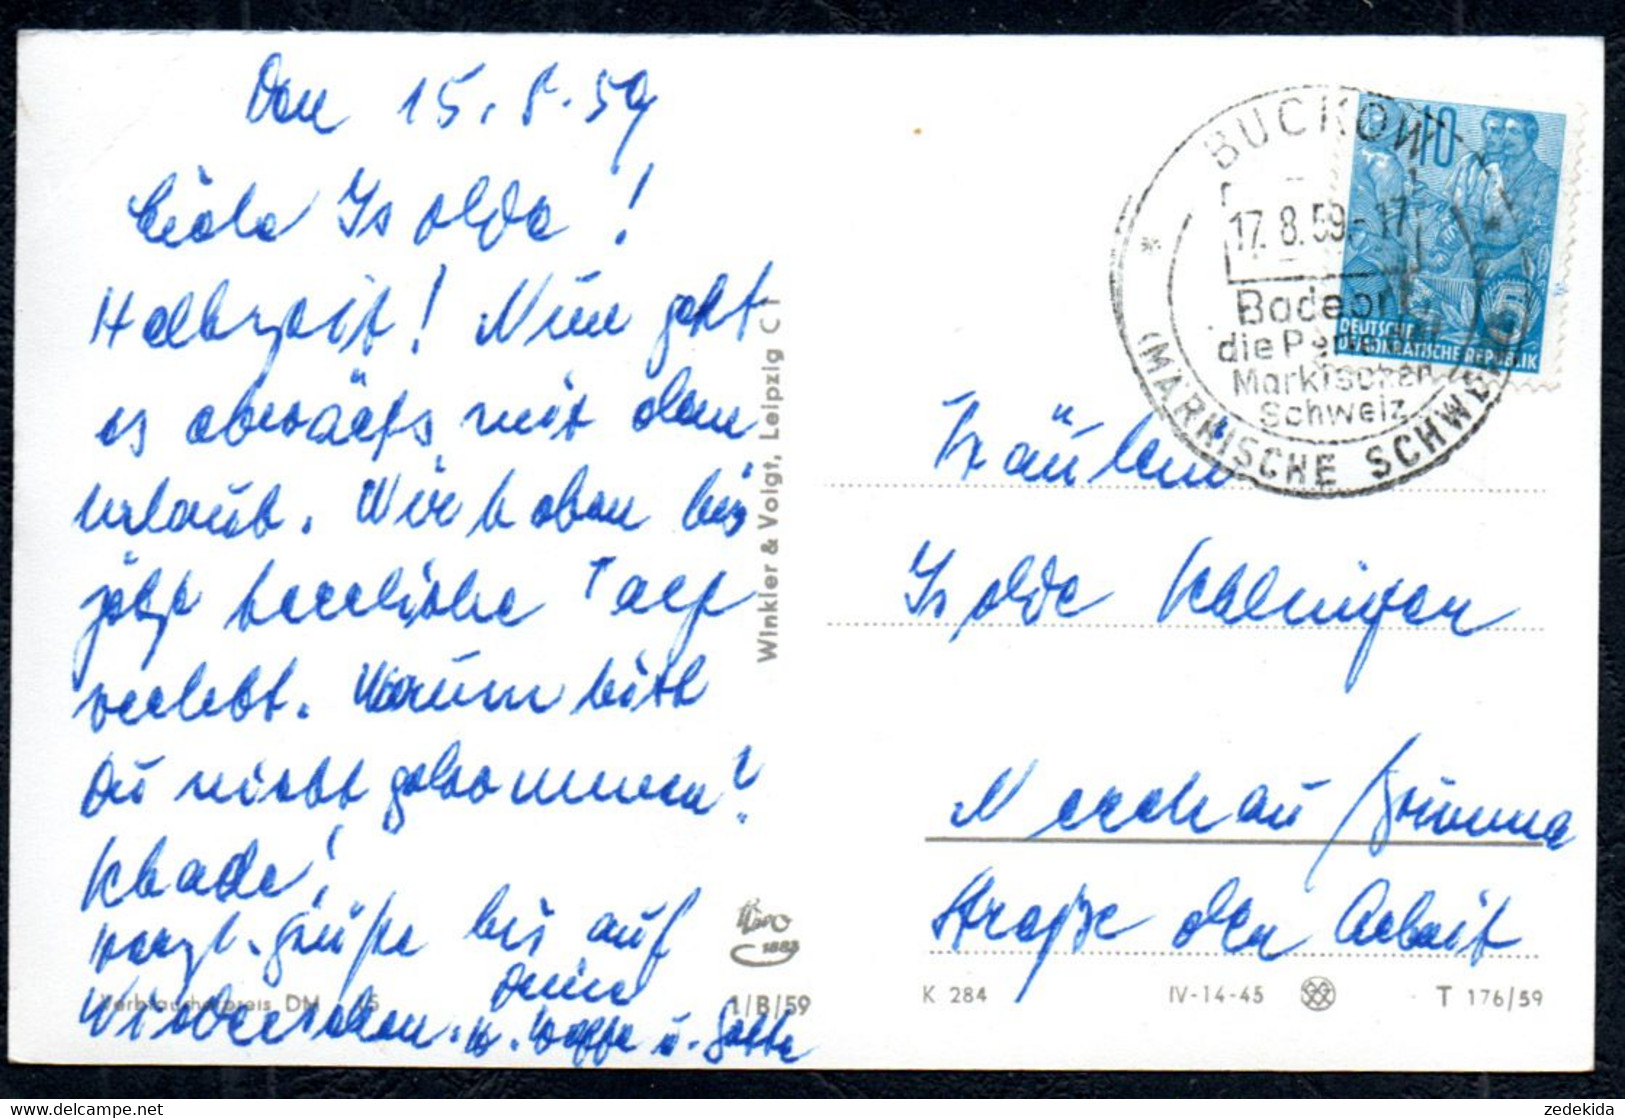 Den 15.8.59
Liebe Isolde!
Halbzeit! Nun geht
es abwärts mit dem
Urlaub. Wir haben bis
jetzt herrliche Tage
verlebt. Warum bist
Du nicht gekommen?
Schade!
Herzl. Grüße bis auf
Wiedersehen. Deine
u. Gatte
Verbraucherpreis DM
1/B/59
1883
Winkler & Voigt, Leipzig C 1
BUCKOW
(MÄRKISCHE SCHWEIZ)
17.8.59.-17
Badeort
die Perle der
Märkischen
Schweiz
10
5
DEUTSCHE
DEMOKRATISCHE REPUBLIK
Fräulein
Isolde
Nerchau/Grimma
Straße der Arbeit
K 284
IV-14-45
T 176/59
zedekida